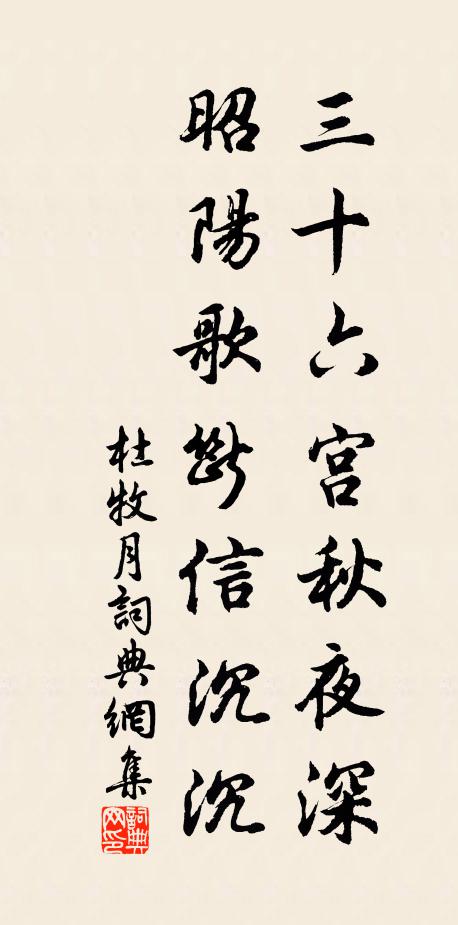 三十六宫秋夜深
昭陽歌斷信沉沉
杜牧月詞典網集
詞典网印